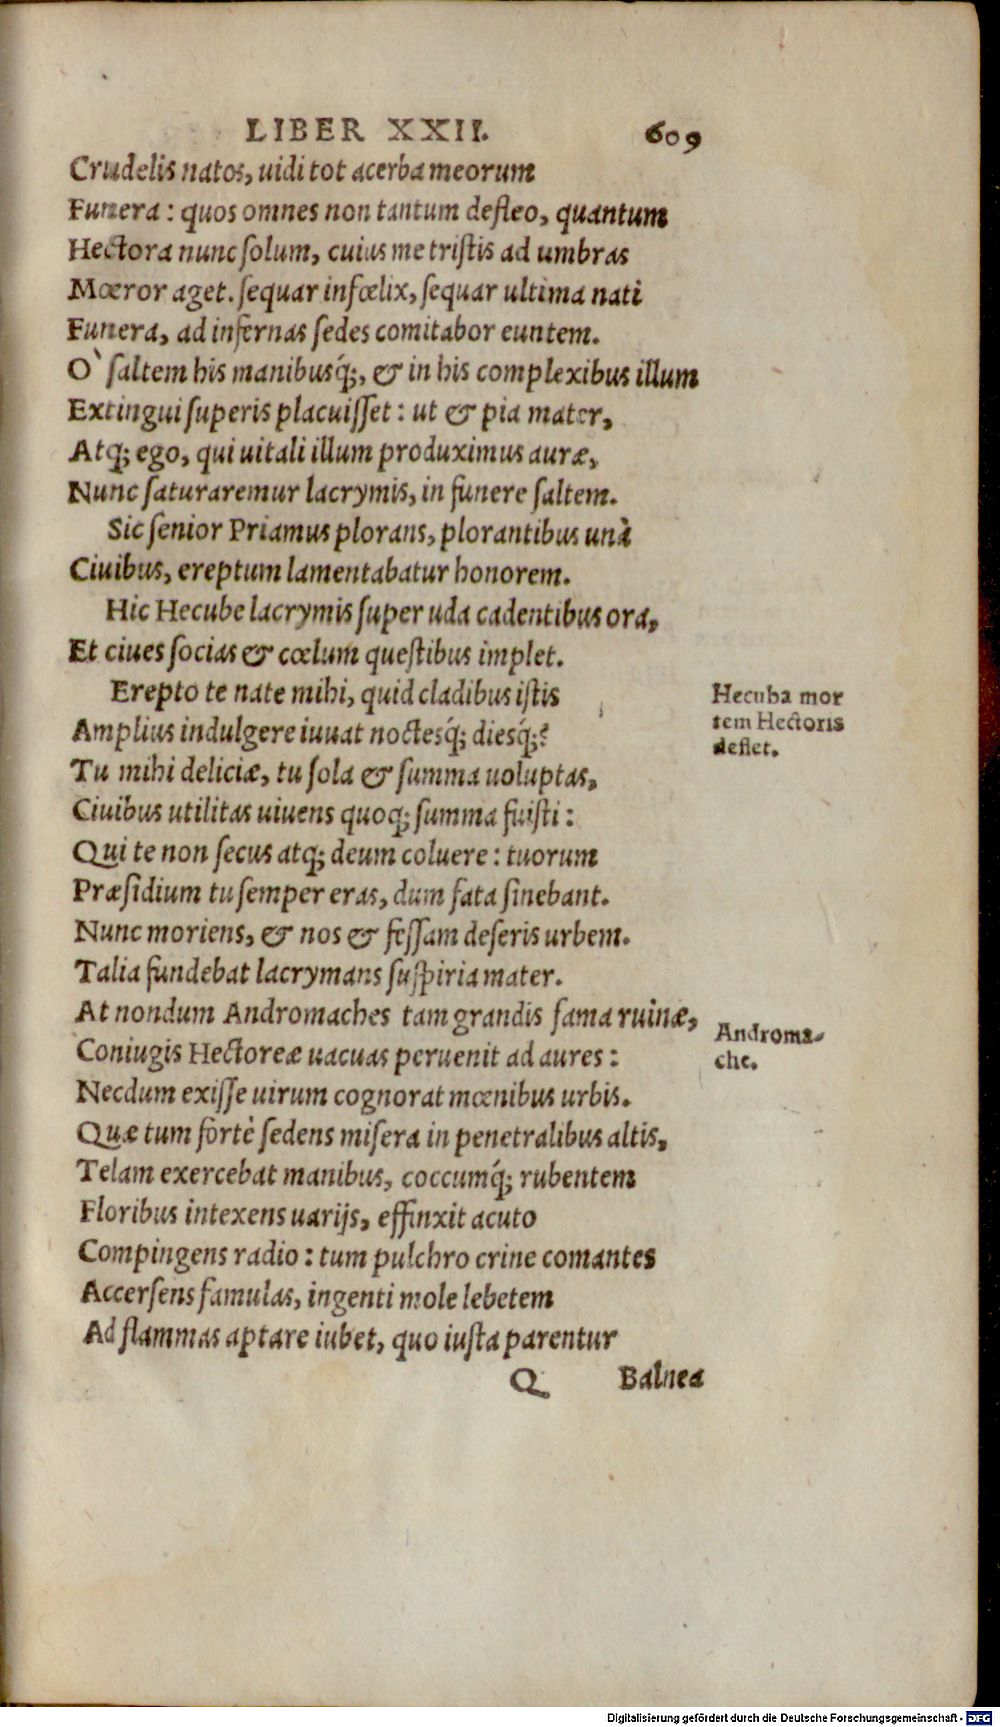 LIBER XXII. 609
Crudelis natos, uidi tot acerba meorum
Funera: quos omnes non tantum defleo, quantum
Hectora nunc ſolum, cuius me triſtis ad umbras
Mœror aget. ſequar infœlix, ſequar ultima nati
Funera, ad infernas ſedes comitabor euntem.
O` ſaltem his manibusq́;, & in his complexibus illum
Extingui ſuperis placuiſſet: ut & pia mater,
Atq; ego, qui uitali illum produximus auræ,
Nunc ſaturaremur lacrymis, in funere ſaltem.
Sic ſenior Priamus plorans, plorantibus unà
Ciuibus, ereptum lamentabatur honorem.
Hic Hecube lacrymis ſuper uda cadentibus ora,
Et ciues ſocias & cœlum queſtibus implet.
Erepto te nate mihi, quid cladibus iſtis
Hecuba mor
tem Hectoris
deflet.
Amplius indulgere iuuat noctesq́; diesq́;?
Tu mihi deliciæ, tu ſola & ſumma uoluptas,
Ciuibus utilitas uiuens quoq; ſumma fuiſti:
Qui te non ſecus atq; deum coluere: tuorum
Præſidium tu ſemper eras, dum fata ſinebant.
Nunc moriens, & nos & feſſam deſeris urbem.
Talia fundebat lacrymans ſuſpiria mater.
At nondum Andromaches tam grandis fama ruinæ,
Androma-
che.
Coniugis Hectoreæ uacuas peruenit ad aures:
Necdum exiſſe uirum cognorat mœnibus urbis.
Quæ tum fortè ſedens miſera in penetralibus altis,
Telam exercebat manibus, coccumq́; rubentem
Floribus intexens uarijs, effinxit acuto
Compingens radio: tum pulchro crine comantes
Accerſens famulas, ingenti mole lebetem
Ad flammas aptare iubet, quo iuſta parentur
Q Balnea
Digitalisierung gefördert durch die Deutsche Forschungsgemeinschaft - DFG